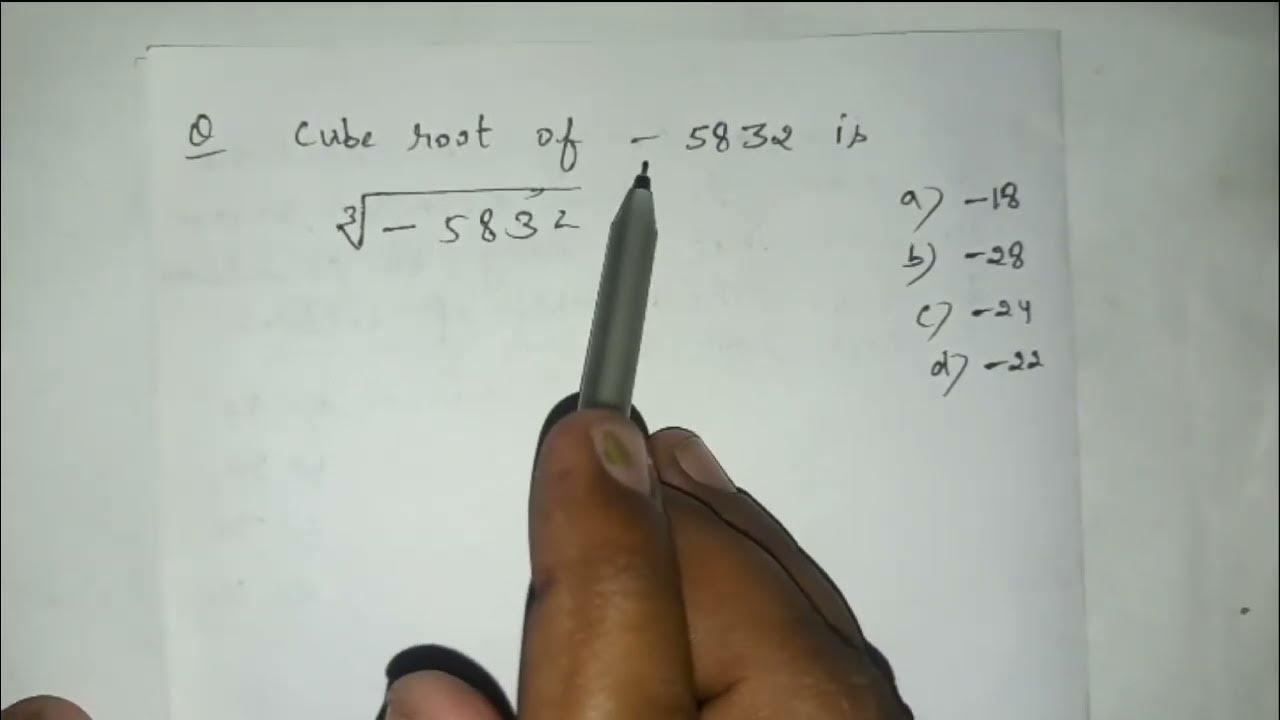 Q Cube root of - 5832 is
∛- 5832
a) -18
b) -28
c) -24
d) -22